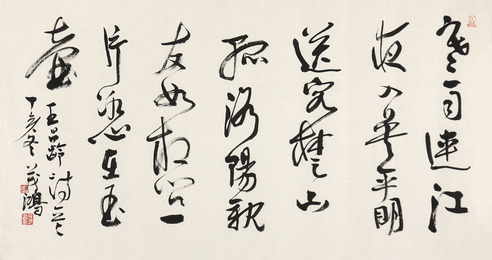 寒雨連江
夜入吳平明
送客楚山
孤洛陽親
友如相问一
片冰心在玉
壺
王昌齡詩
丁亥冬